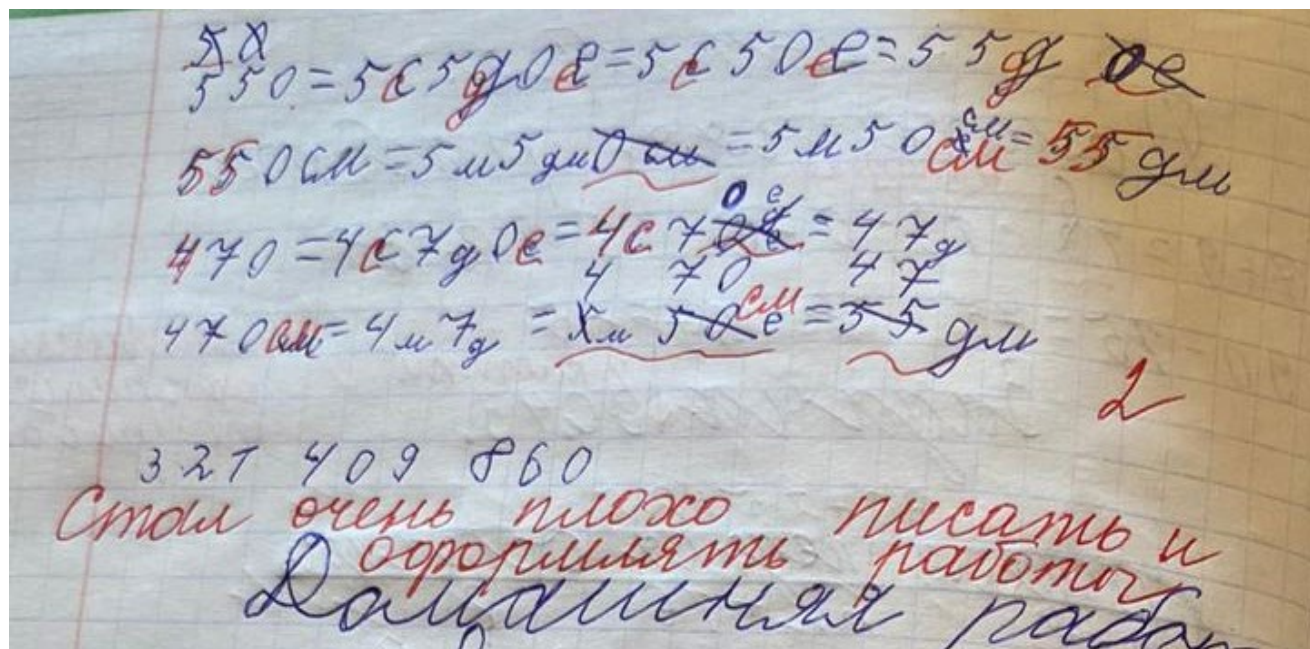 550 = 5с 5д 0е = 5с 50е = 55д
550 см = 5 м 5 дм 0 см = 5 м 50 см = 55 дм
470 = 4с 7д 0е = 4с 70е = 47д
4 70 47
470 см = 4 м 7д = 5м 50 см = 55 дм
2
321 409 860
Стал очень плохо писать и
оформлять работы
Домашняя работ